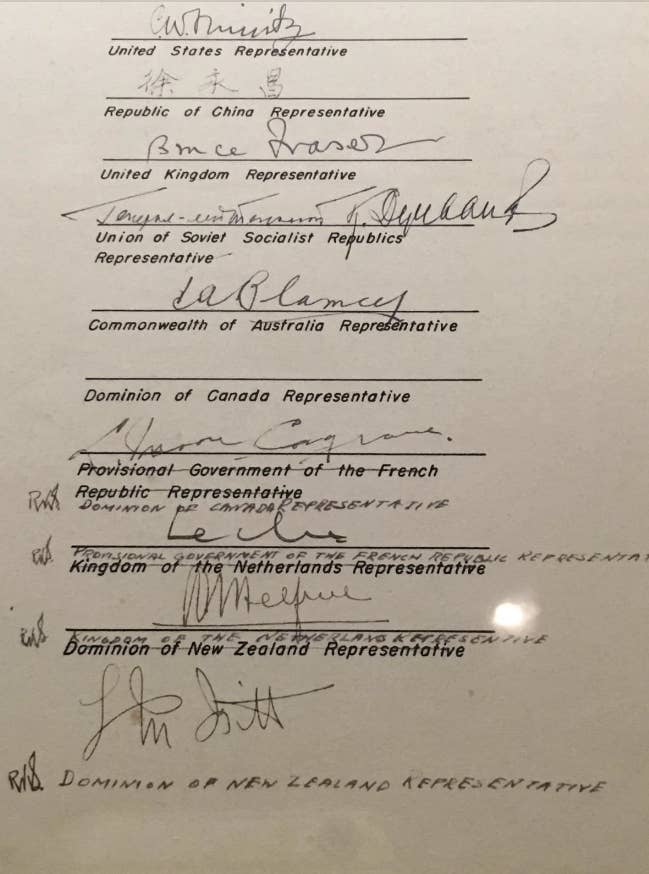 C.W. Nimitz
United States Representative
徐永昌
Republic of China Representative
Bruce Fraser
United Kingdom Representative
Union of Soviet Socialist Republics
Representative
T.A. Blamey
Commonwealth of Australia Representative
Dominion of Canada Representative
L. Moore Cosgrave.
Provisional Government of the French
RKS Republic Representative
DOMINION OF CANADA REPRESENTATIVE
Leclerc
RKS PROVISIONAL GOVERNMENT OF THE FRENCH REPUBLIC REPRESENTAT
Kingdom of the Netherlands Representative
Helfrich
RKS KINGDOM OF THE NETHERLANDS REPRESENTIVE
Dominion of New Zealand Representative
L M Isitt
RKS. DOMINION OF NEW ZEALAND REPRESENTATIVE